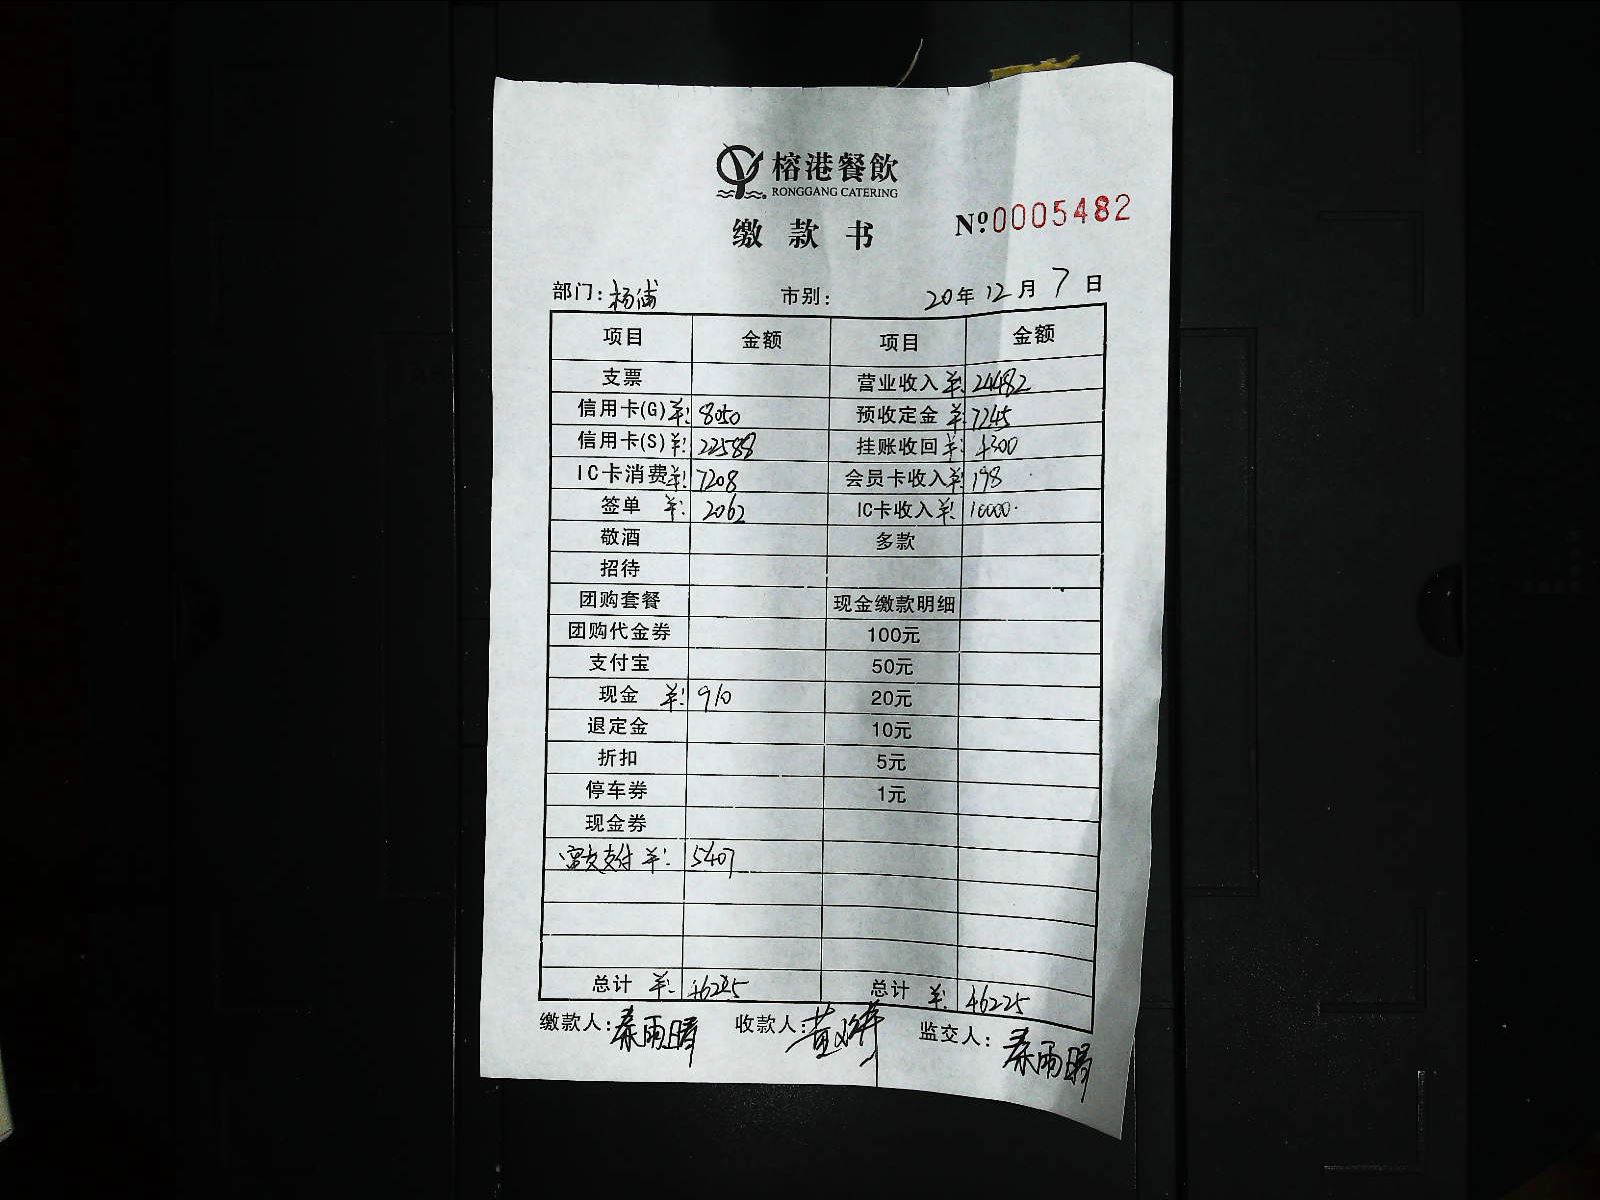 榕港餐飲
RONGGANG CATERING
缴款书
Nº0005482
部门：杨浦 市别： 20年12月7日
项目 金额 项目 金额
支票 营业收入 羊: 24482
信用卡(G) 羊: 8050 预收定金 羊: 7245
信用卡(S) 羊: 22588 挂账收回 羊: 4300
IC卡消费 羊: 7208 会员卡收入 羊: 198
签单 羊: 2062 IC卡收入 羊: 10000
敬酒 多款
招待
团购套餐 现金缴款明细
团购代金券 100元
支付宝 50元
现金 羊: 910 20元
退定金 10元
折扣 5元
停车券 1元
现金券
富友支付 羊: 5407
总计 羊: 46225 总计 羊: 46225
缴款人：秦雨晴 收款人：黄 监交人：秦雨晴